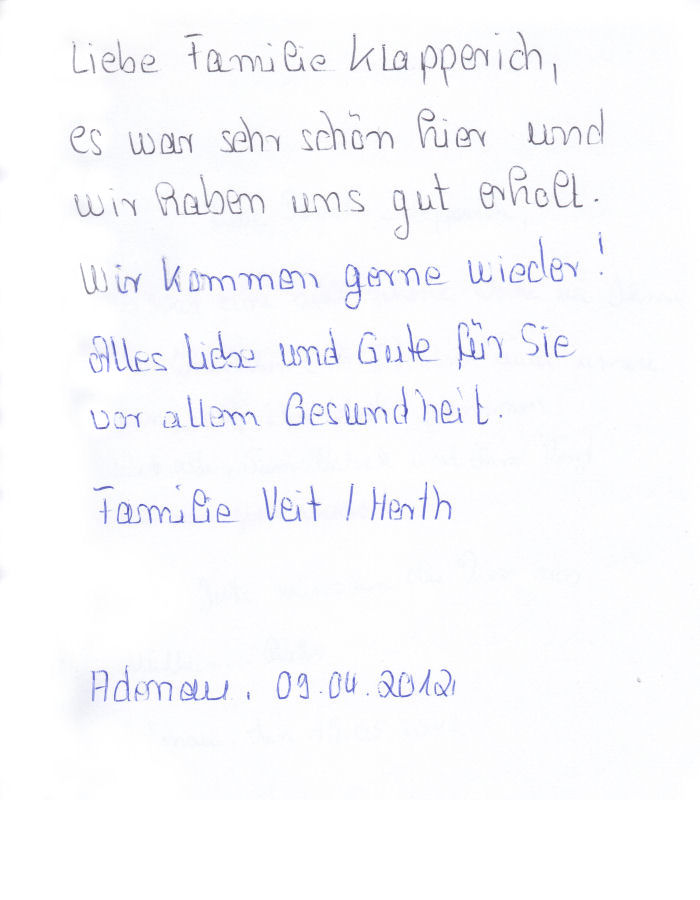 Liebe Familie Klapperich,
es war sehr schön hier und
wir haben uns gut erholt.
Wir kommen gerne wieder!
Alles Liebe und Gute für Sie
vor allem Gesundheit.
Familie Veit / Herth
Adenau, 09.04.2012